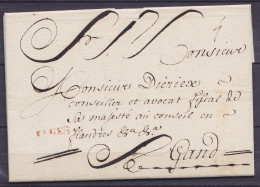 Monsieur
Monsieur Dierix
conseiller et avocat fiscal de
sa majesté au conseil en
flandres
Gand